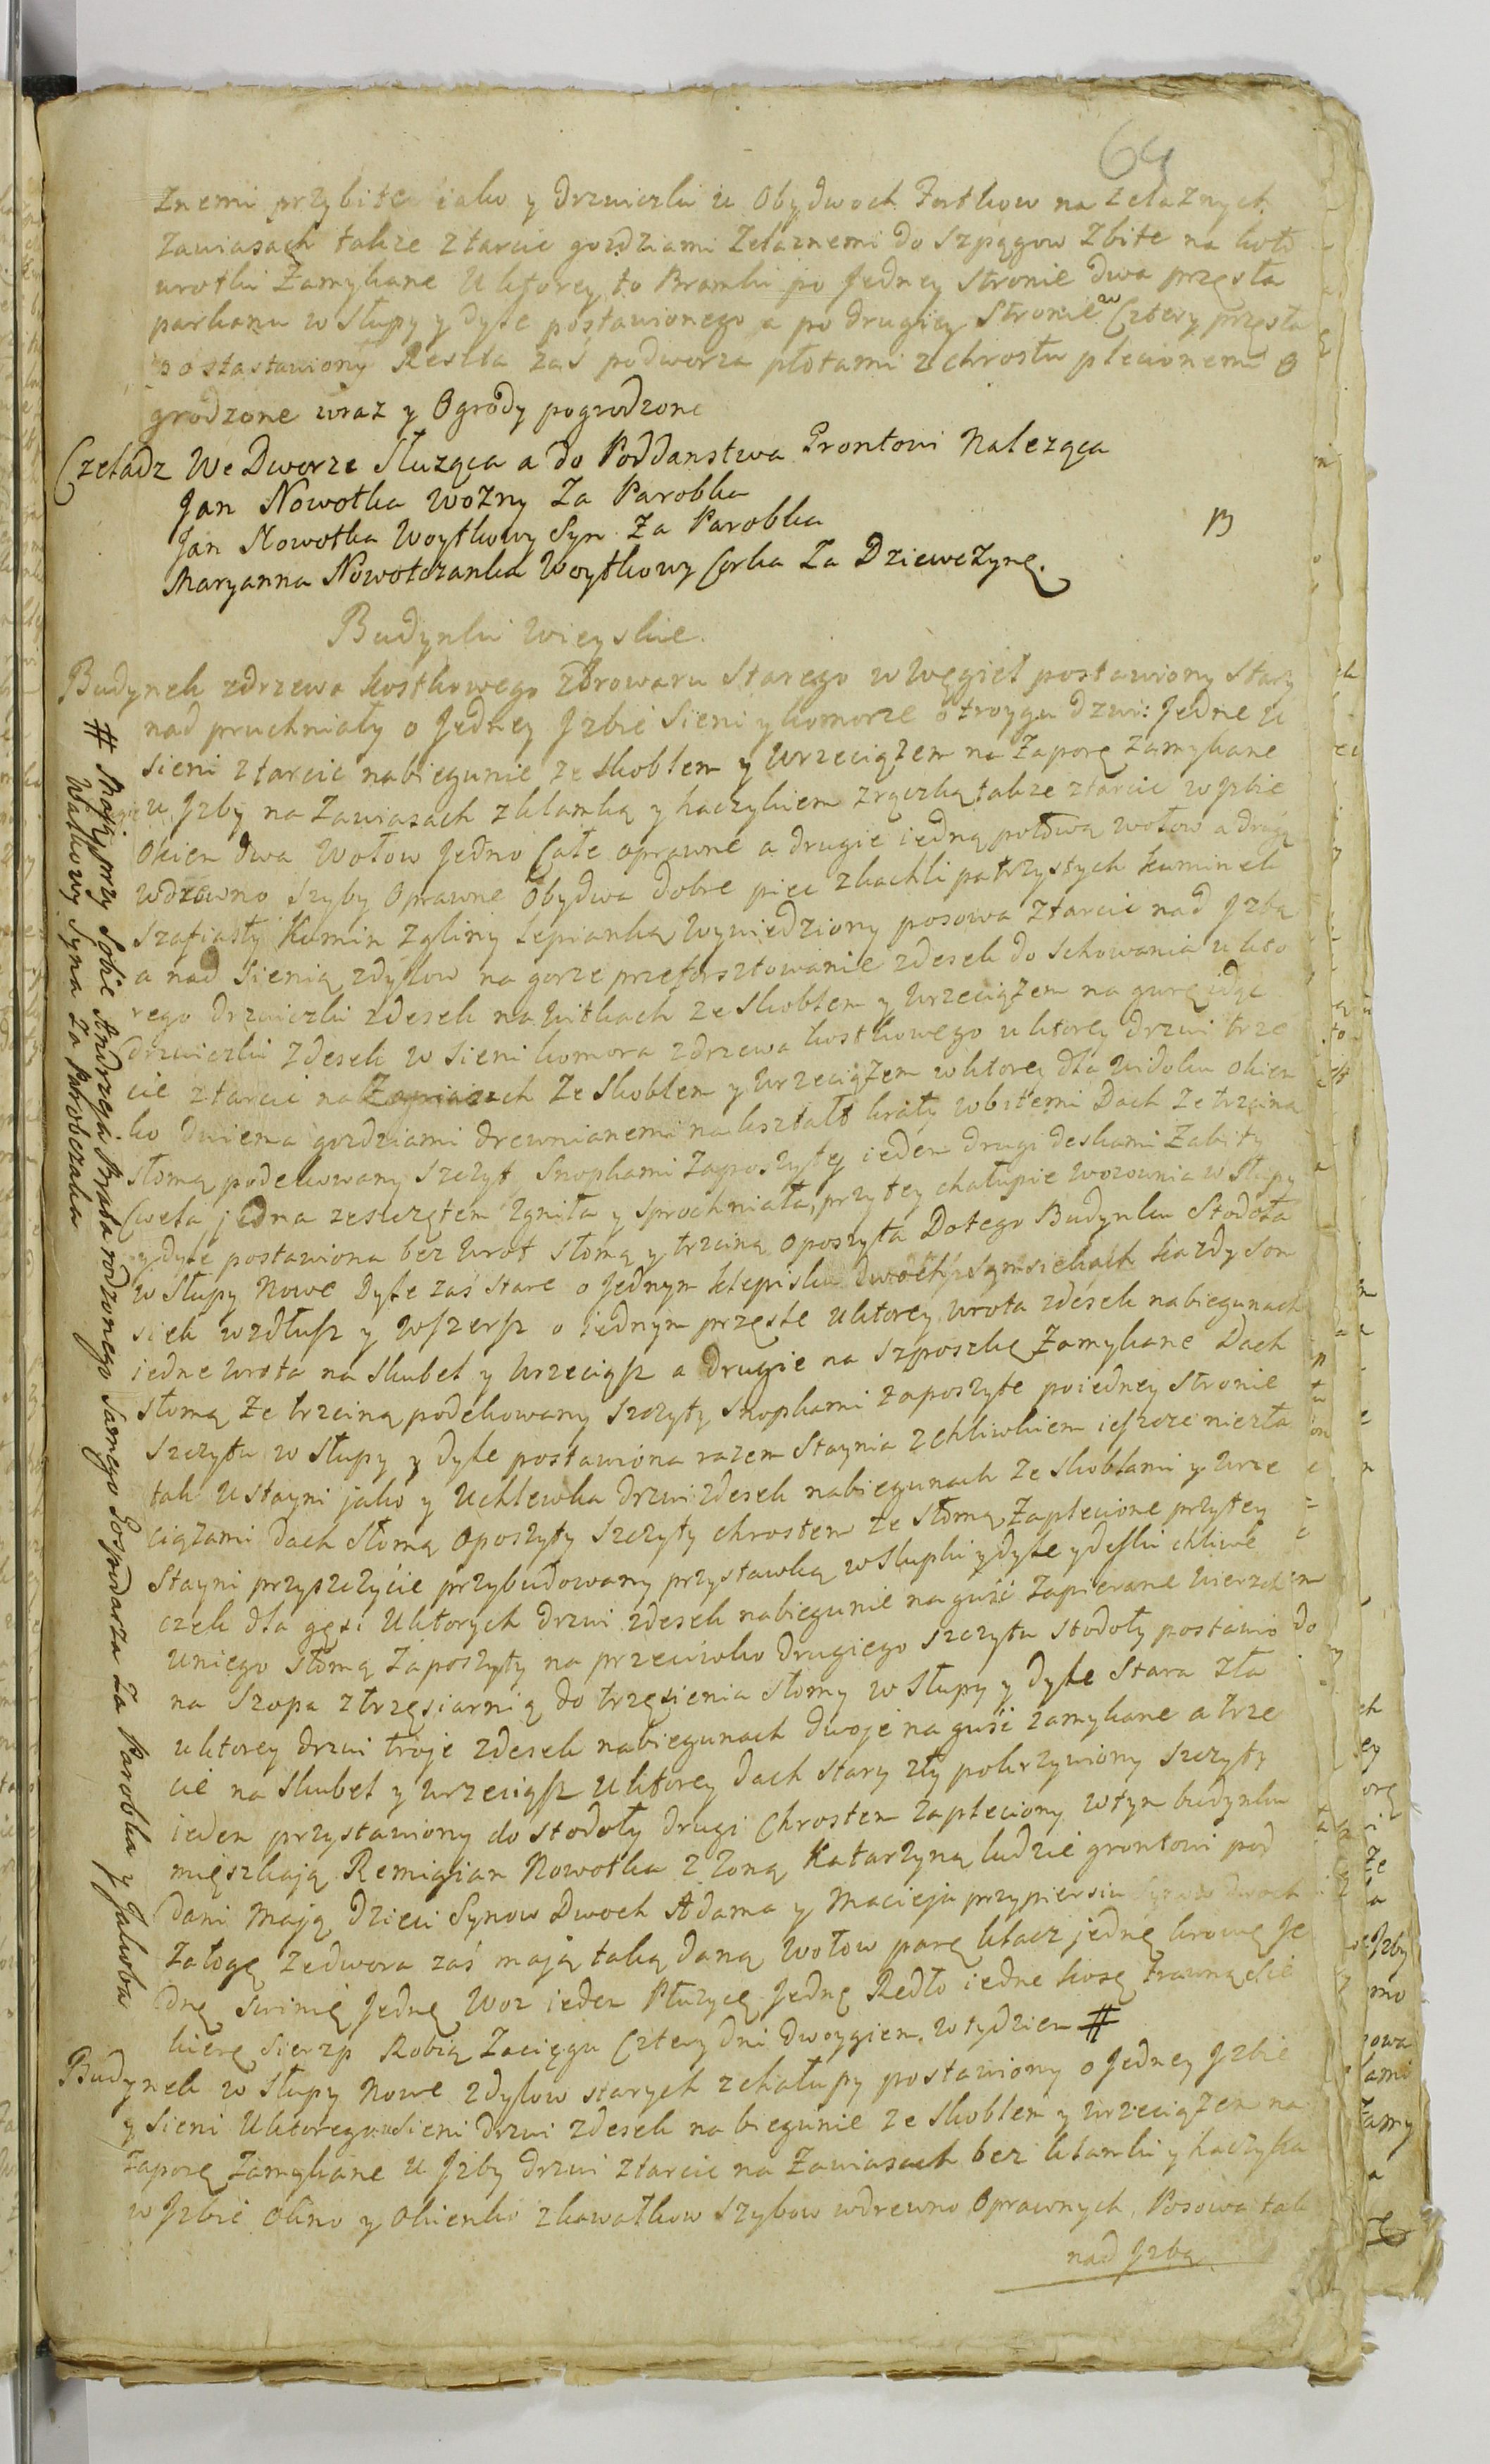 64
znemi przybite iako y Drzwiczki u Obydwoch Fortkow na zelaznych
zawiasach takze ztarcic gozdziami Zelaznemi do Szpągow Zbite na koło
wrotki Zamykane U ktorey to Bramki po Jedney Stronie dwa przęsła
parkanu w Słupy y dyle postawionego a po drugiey Stronie w Cztery przęsła
Reszta zaś podworza płotami z chrostu plecionemi o
grodzone wraz y Ogrody pogrodzone
Czeladz We Dworze Służąca a do Poddanstwa Grontowi Naleząca
Jan Nowotka Wozny Za Parobka
Jan Nowotka Woytkowy Syn Za Parobka
Maryanna Nowotczanka Woytkowy Corka Za Dziewczynę.
Budynki Wieyskie.
Budynek zdrzewa kostkowego zBrowaru Starego w Węgieł postawiony Stary
nad pruchniały o Jedney Jzbie Sieni y komorze o troygu dzwi: Jedne u
Sieni ztarcic nabiegunie ze Skoblem y Wrzeciązem na Zaporę zamykane
u Jzby na Zawiasach zklamką y haczykiem zrączką takze ztarcic w Jzbie
Okien dwa Wołow Jedno Całe oprawne a drugie iedną połową wołow a drugą
wdrzewno Szyby Oprawne Obydwa dobre piec zkachli patrzystych kuminek
Szafiasty Kumin zgliny Lepianką Wywiedziony posowa ztarcic nad Jzbą
a nad Sienią zdylow na gorze przeforsztowanie zdesek do Schowania u kto
rego Drzwiczki zdesek na Witkach ze Skoblem y Wrzeciązem na gurę idąc
drzwiczki zdesek w Sieni komora zdrzewa kostkowego u ktorey drzwi trze
cie ztarcic na Zawiasach Ze Skoblem y Wrzeciązem w ktorey dla Widoku okien
ko dwiema gozdziami drewnianemi na kształt kraty wbitemi Dach Ze trzciną
słomą podekowany Szczyt Snopkami Zaposzyty ieden drugi deskami Zabity
Cweła jedna zeswzętem Zgniła y Sprochniała, przy tey chałupie wozownia w Słupy
y dyle postawiona bez Wrot Słomą y trzciną oposzyta Dotego Budynku Stodoła
w Słupy Nowe Dyle zaś Stare o Jednym klepisku dwoch Sąmsiekach kazdy Som
siek wzdłusz y Wszersz o iednym przęsle u ktorey, wrota zdesek nabiegunach
iedne Wrota na Skubel y Wrzeciąsz a drugie na Szposzkę Zamykane Dach
słomą Ze trzciną podekowany Szczyty Snopkami zaposzyte poiedney Stronie
Szczytu w Słupy y dyle postawiona razem Staynia zchliwkiem ieszcze niezła
tak Ustayni jako y Uchlewka drzwi zdesek nabiegunach ze Skoblami y Wrze
ciązami dach Słomą Oposzyty Szczyty chrostem ze Słomą Zaplecione przytey
Stayni przyszczycie przybudowany przystawką w Słupki y dyle ydeski chliwe
czek dla gęsi U ktorych drzwi zdesek nabiegunie naguść Zapierane Wierzch
Uniego Słomą Zaposzyty na przeciwko drugiego Szczytu stodoły postawio
na Szopa ztrzęsiarnią do trzęsienia Słomy w Słupy y dyle Stara zła
u ktorey drzwi troje zdesek nabiegunach dwoje naguść zamykane a trze
cie na Skubel y wrzeciąsz U ktorey dach stary zły pokrzywiony szczyty
ieden przystawiony do stodoły drugi Chrostem zapleciony wtym budynku
mięszkaią Remigian Nowotka z Zoną Katarzyną ludzie grontowi pod
dani Mają dzieci Synow Dwoch Adama y Macieja przypiersiu
Załogę Zedwora zaś mają taką daną Wołow parę klacz jednę krowę Je
dnę Swinię Jednę Woz ieden Płużycę Jednę Redło iedne kosę trawną Sie
kierę Sierzp Robią Zaciągu Cztery dni dwoygiem w tydzien #
Budynek w Słupy Nowe zdylow starych zchałupy postawiony o Jedney Jzbie
y Sieni Uktorego u Sieni drzwi zdesek nabiegunie ze Skoblem y wrzeciązem na
zaporę Zamykane u Jzby drzwi ztarcic na Zawiasach bez klamki y haczyka
w Jzbie Okno y Okienko zkawałkow Szybow wdrewno Oprawnych, Posowa tak
nad Jzbą
# Mają przy Sobie Andrzeja Brata rodzonego Samego Gospodarza Za Parobka y Jakoba
Walkowy Syna Za Parobczaka